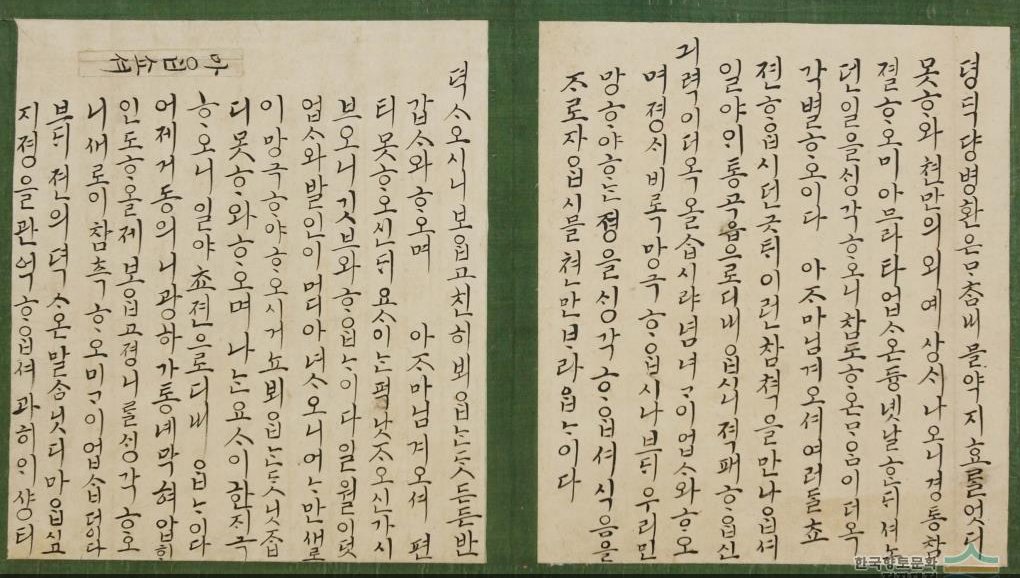 뎍 ᄉᆞ오시니 보ᄋᆞᆸ고 친히 뵈ᄋᆞᆸᄂᆞᆫ ᄃᆞᆺ 든든 반
갑ᄉᆞ와 ᄒᆞ오며 아ᄌᆞ마님겨오셔 편
티 못ᄒᆞ오신ᄃᆡ 요ᄉᆞ이ᄂᆞᆫ 퍽 낫ᄌᆞ오신가 시
브오니 깃브와 ᄒᆞᄋᆞᆸᄂᆞ이다 일월이 덧
업ᄉᆞ와 발인이 머디 아녀ᄉᆞ오니 어ᄂᆞ만 새로
이 망극ᄒᆞ야 ᄒᆞ오시거뇨 뵈ᄋᆞᆸᄂᆞᆫ ᄃᆞᆺ 닛ᄌᆞᆸ
디 못ᄒᆞ와 ᄒᆞ오며 나ᄂᆞᆫ 요ᄉᆞ이 한ᄌᆡ 극
ᄒᆞ오니 일야 쵸젼으로 디내ᄋᆞᆸᄂᆞ이다
어제 거동의 니광하가 통녜 막혀 압ᄒᆡ
인도ᄒᆞ올 제 보ᄋᆞᆸ고 졍니ᄅᆞᆯ ᄉᆡᆼ각ᄒᆞ오
니 새로이 참측ᄒᆞ오미 ᄀᆞ이업ᄉᆞᆸ더이다
브ᄃᆡ 젼의 뎍ᄉᆞ온 말ᄉᆞᆷ 닛디 마ᄋᆞᆸ시고
지졍을 관억ᄒᆞᄋᆞᆸ셔 과히 ᄋᆡ샹티
마ᄋᆞᆸ쇼셔
뎡ᄃᆡᆨ 댱병환은 ᄆᆞᄎᆞᆷ내 믈약지효ᄅᆞᆯ 엇디
못ᄒᆞ와 쳔만의외예 상ᄉᆞ 나오니 경통 참
졀ᄒᆞ오미 아므라타 업ᄉᆞ온 듕 녯날 ᄒᆞᆫᄃᆡ셔 노
던 일을 ᄉᆡᆼ각ᄒᆞ오니 참도ᄒᆞ온 ᄆᆞ음이 더옥
각별ᄒᆞ오이다 아ᄌᆞ마님겨오셔 여러ᄃᆞᆯ 쵸
젼ᄒᆞᄋᆞᆸ시던 긋ᄐᆡ 이런 참쳑을 만나ᄋᆞᆸ셔
일야 ᄋᆡ통 곡읍으로 디내ᄋᆞᆸ시니 젹패ᄒᆞᄋᆞᆸ신
긔력이 더옥 올ᄉᆞᆸ시랴 념녀 ᄀᆞ이업ᄉᆞ와 ᄒᆞ오
며 졍ᄉᆞ 비록 망극ᄒᆞᄋᆞᆸ시나 브ᄃᆡ 우리 민
망ᄒᆞ야 ᄒᆞᄂᆞᆫ 졍을 ᄉᆡᆼ각ᄒᆞᄋᆞᆸ셔 식음을
ᄌᆞ로 자ᄋᆞᆸ시믈 쳔만 ᄇᆞ라ᄋᆞᆸᄂᆞ이다
한국향토문화